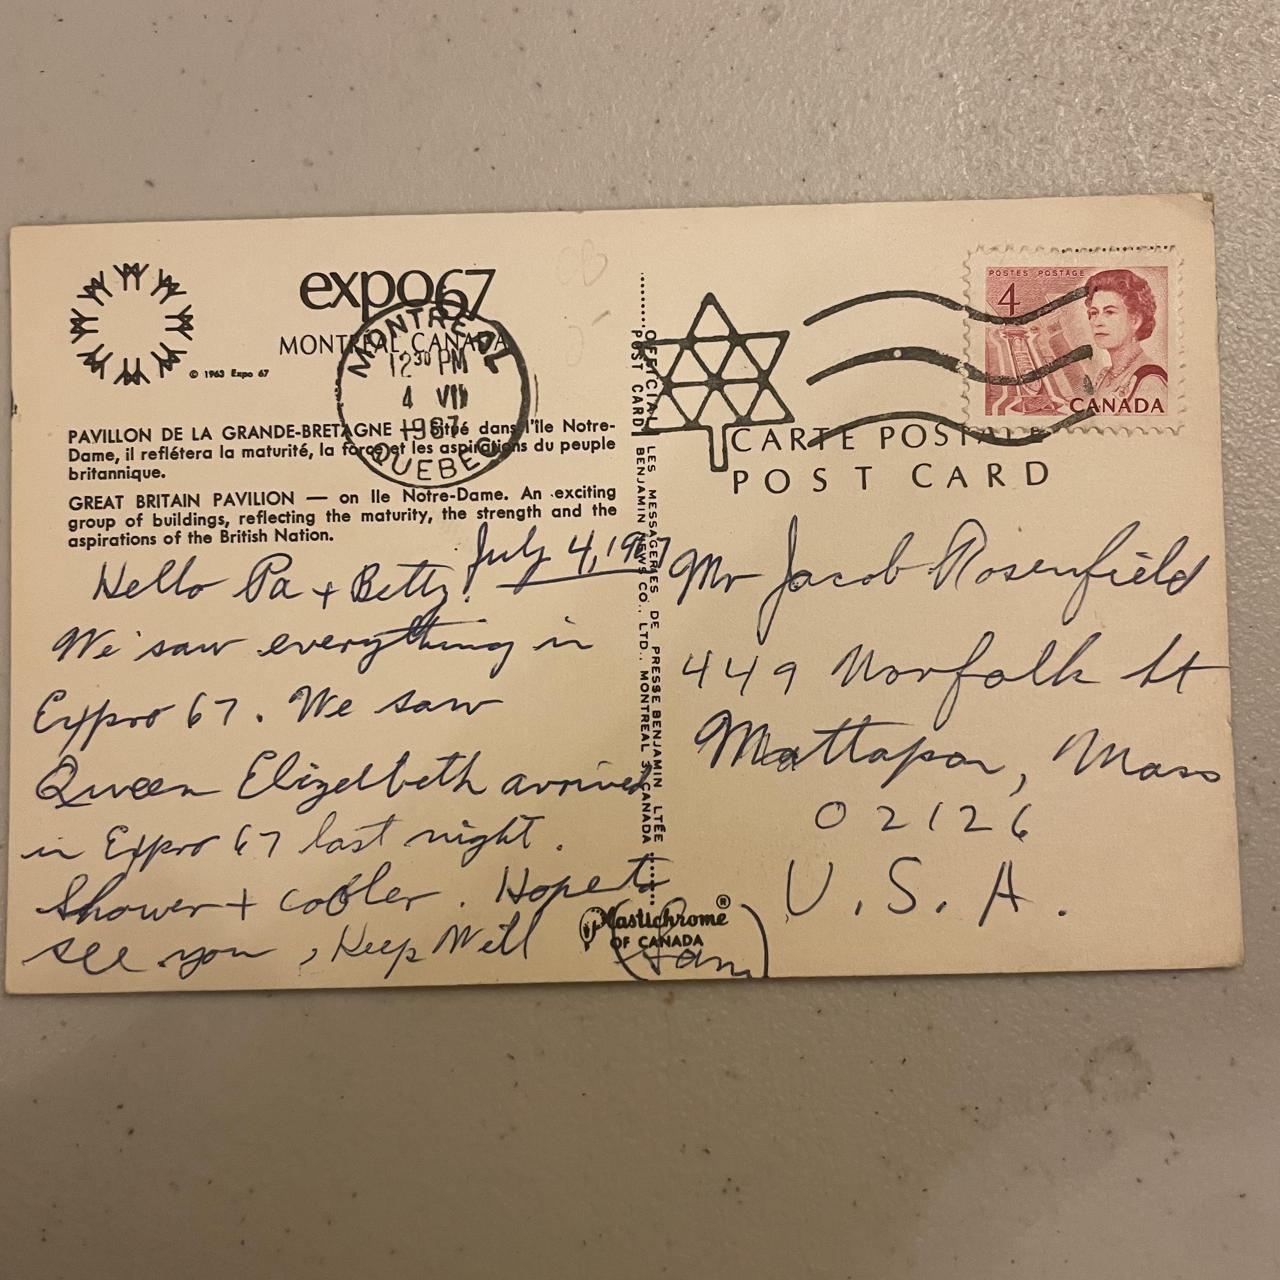 expo67
MONTREAL CANADA
© 1963 Expo 67
MONTREAL
12 30 PM
4 VII
1967
QUEBEC
PAVILLON DE LA GRANDE-BRETAGNE — Situé dans l'île Notre-
Dame, il reflétera la maturité, la force et les aspirations du peuple
britannique.
GREAT BRITAIN PAVILION — on Ile Notre-Dame. An exciting
group of buildings, reflecting the maturity, the strength and the
aspirations of the British Nation.
July 4, 1967
Hello Pa + Betty!
We saw everything in
Expro 67. We saw
Queen Elizelbeth arrived
in Expro 67 last night.
Shower + cooler. Hope to
see you, Keep Well
Sam
OFFICIAL
POST CARD
LES MESSAGERIES DE PRESSE BENJAMIN LTÉE
BENJAMIN NEWS CO., LTD., MONTREAL 3, CANADA
Plastichrome®
OF CANADA
POSTES POSTAGE
4
CANADA
CARTE POSTALE
POST CARD
Mr Jacob Rosenfield
449 Norfolk St
Mattapan, Mass
02126
U.S.A.